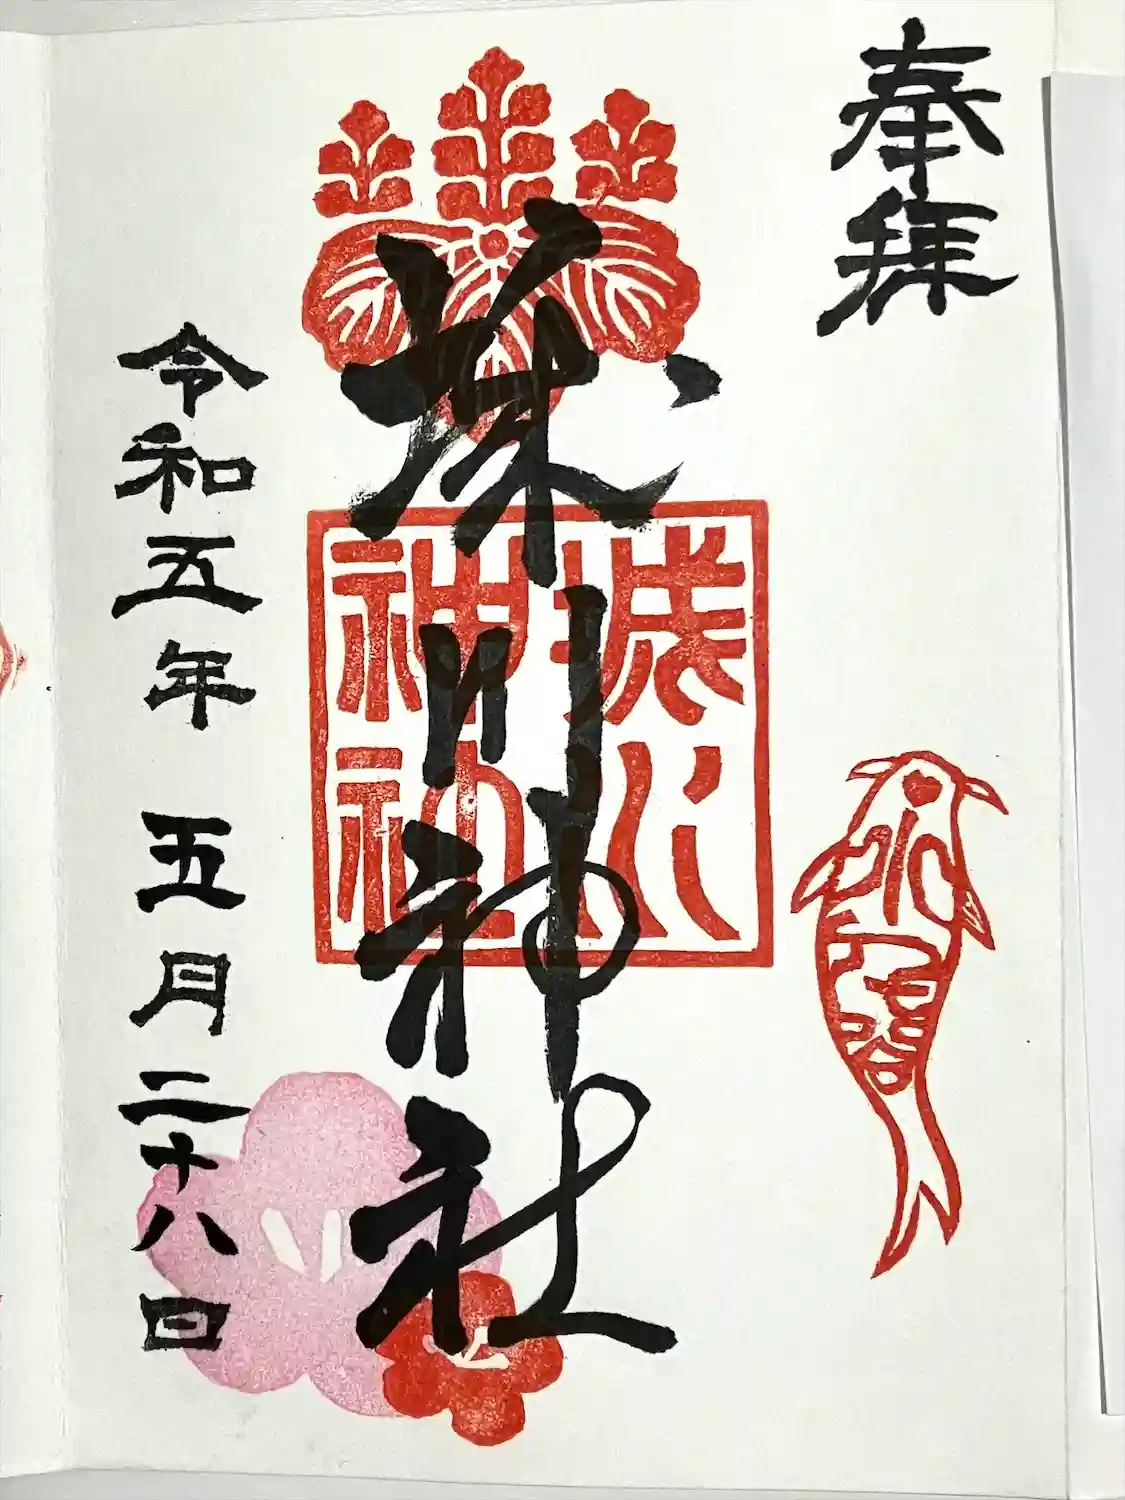 奉拝
川神社
川
神社
令和五年 五月二十八日